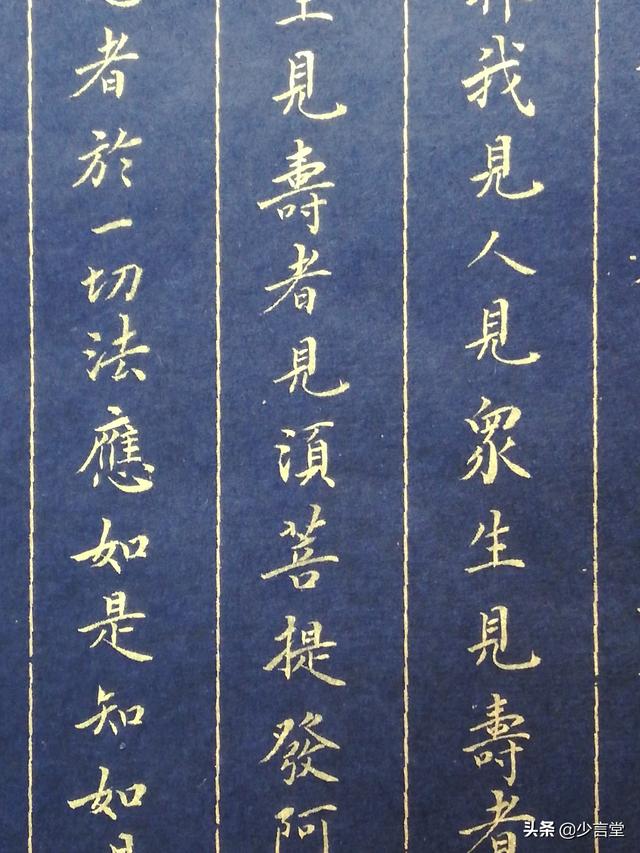 我見人見眾生見壽者
生見壽者見須菩提發阿
者於一切法應如是知如是
头条 @少言堂